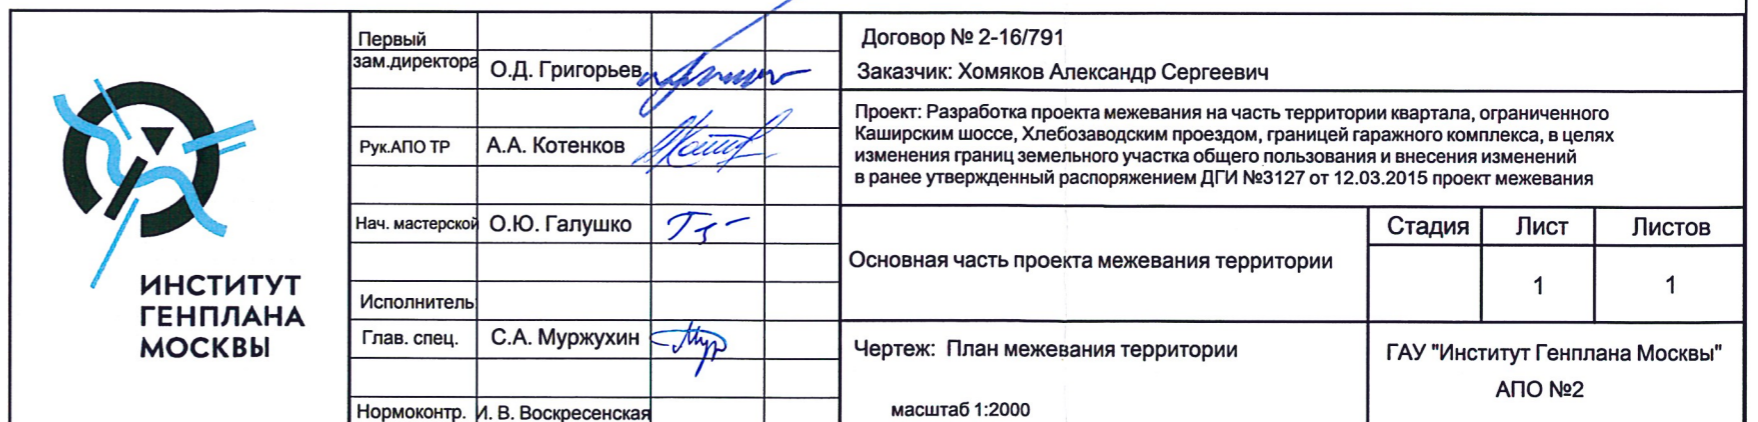 ИНСТИТУТ
ГЕНПЛАНА
МОСКВЫ
Первый
зам.директора О.Д. Григорьев
Рук.АПО ТР А.А. Котенков
Нач. мастерской О.Ю. Галушко
Исполнитель
Глав. спец. С.А. Муржухин
Нормоконтр. И. В. Воскресенская
Договор № 2-16/791
Заказчик: Хомяков Александр Сергеевич
Проект: Разработка проекта межевания на часть территории квартала, ограниченного
Каширским шоссе, Хлебозаводским проездом, границей гаражного комплекса, в целях
изменения границ земельного участка общего пользования и внесения изменений
в ранее утвержденный распоряжением ДГИ №3127 от 12.03.2015 проект межевания
Основная часть проекта межевания территории
Стадия Лист Листов
1 1
Чертеж: План межевания территории
масштаб 1:2000
ГАУ "Институт Генплана Москвы"
АПО №2